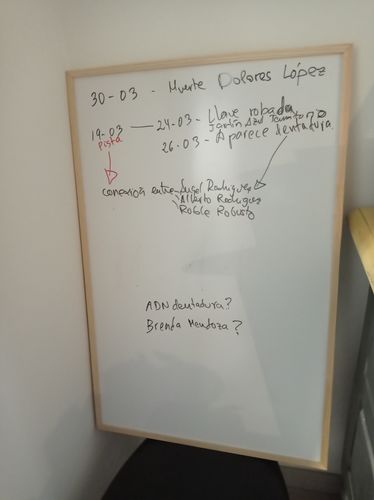 30-03 - Muerte Dolores López
19-03 — 24-03 - Llave robada
Pista
Jardín Azul
26.03 - Aparece dentadura.
conexión entre Angel Rodriguez
Alberto Rodriguez
Roble Robusto
ADN dentadura?
Brenda Mendoza?